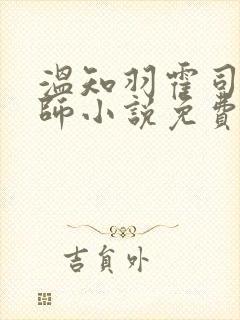 温知羽霍司
師小說免費
吉負外